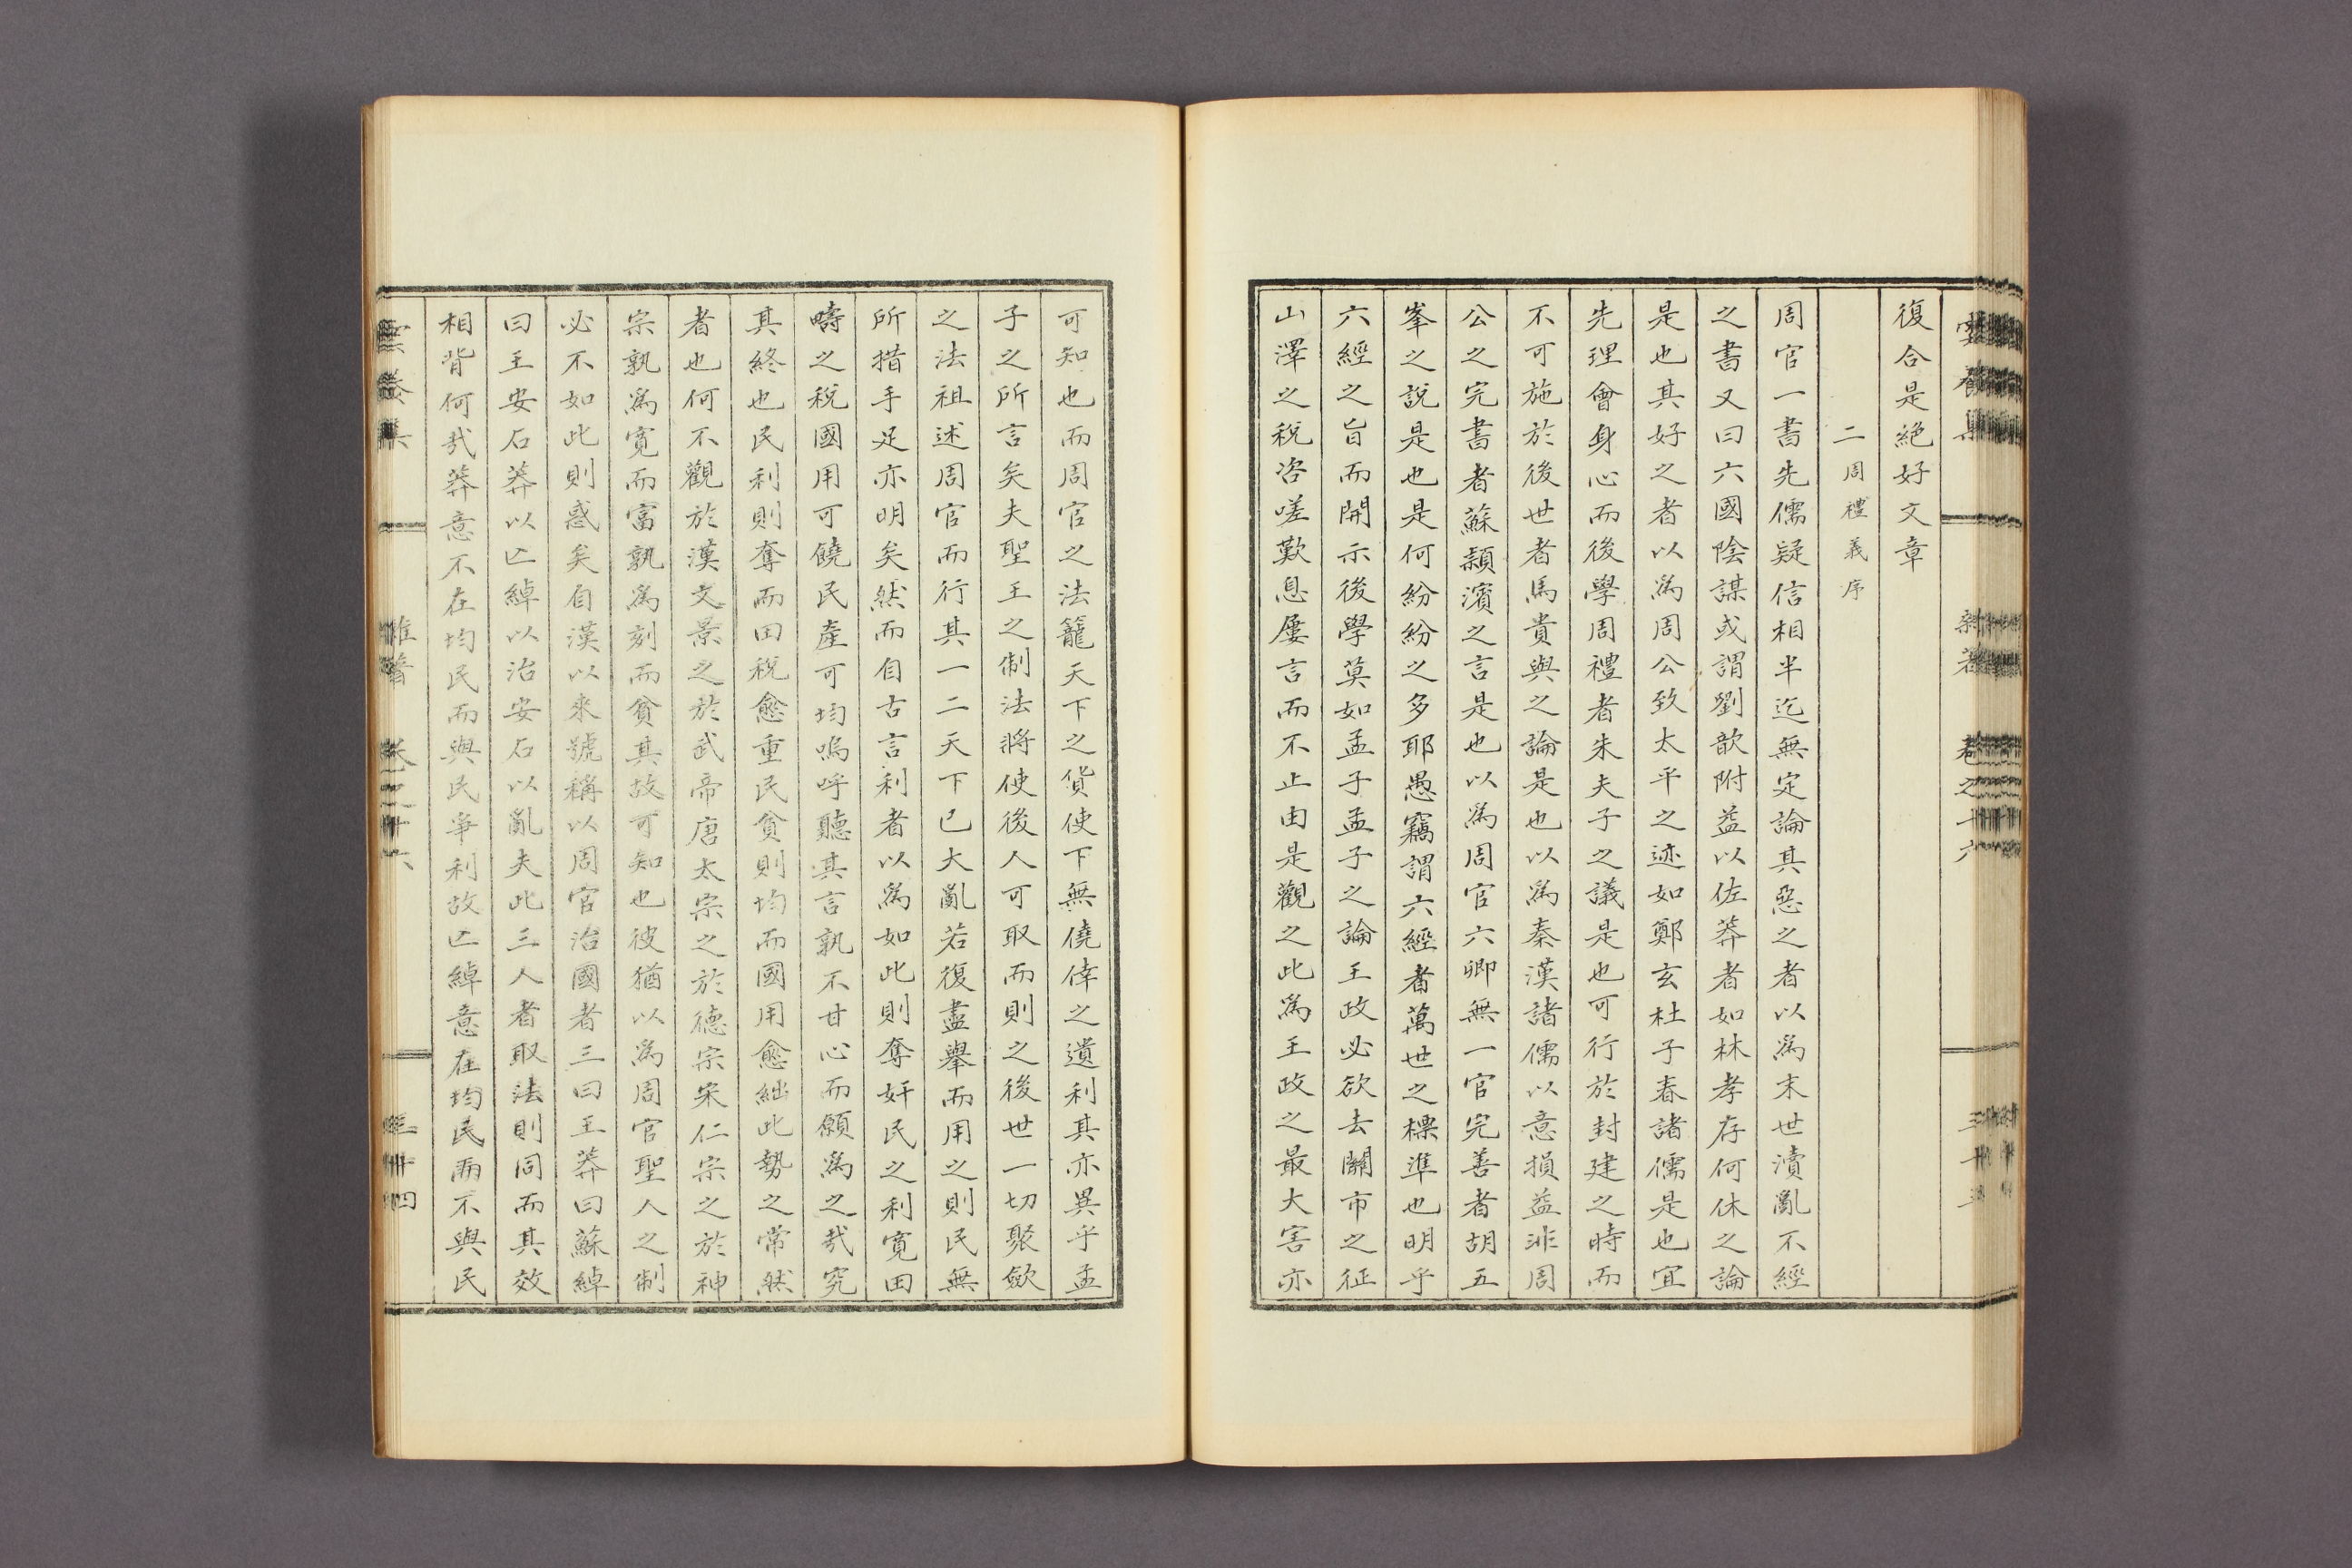 復合是絶好文章
二周禮義序
周官一書先儒疑信相半迄無定論其惡之者以爲末世瀆亂不經
之書又曰六國陰謀或謂劉歆附益以佐莽者如林孝存何休之論
是也其好之者以爲周公致太平之迹如鄭玄杜子春諸儒是也宜
先理會身心而後學周禮者朱夫子之議是也可行於封建之時而
不可施於後世者馬貴與之論是也以爲秦漢諸儒以意損益非周
公之完書者蘇潁濱之言是也以爲周官六卿無一官完善者胡五
峯之說是也是何紛紛之多耶愚竊謂六經者萬世之標準也明乎
六經之旨而開示後學莫如孟子孟子之論王政必欲去關市之征
山澤之稅咨嗟歎息屢言而不止由是觀之此爲王政之最大害亦
可知也而周官之法籠天下之貨使下無僥倖之遺利其亦異乎孟
子之所言矣夫聖王之制法將使後人可取而則之後世一切聚斂
之法祖述周官而行其一二天下已大亂若復盡舉而用之則民無
所措手足亦明矣然而自古言利者以爲如此則奪奸民之利寛田
疇之稅國用可饒民產可均嗚呼聽其言孰不甘心而願爲之哉究
其終也民利則奪而田稅愈重民貧則均而國用愈絀此勢之常然
者也何不觀於漢文景之於武帝唐太宗之於德宗宋仁宗之於神
宗孰爲寬而富孰爲刻而貧其故可知也彼猶以爲周官聖人之制
必不如此則惑矣自漢以來號稱以周官治國者三曰王莽曰蘇綽
曰王安石莽以亾綽以治安石以亂夫此三人者取法則同而其效
相背何哉莽意不在均民而與民爭利故亾綽意在均民而不與民
雜著 卷之十六 三十四